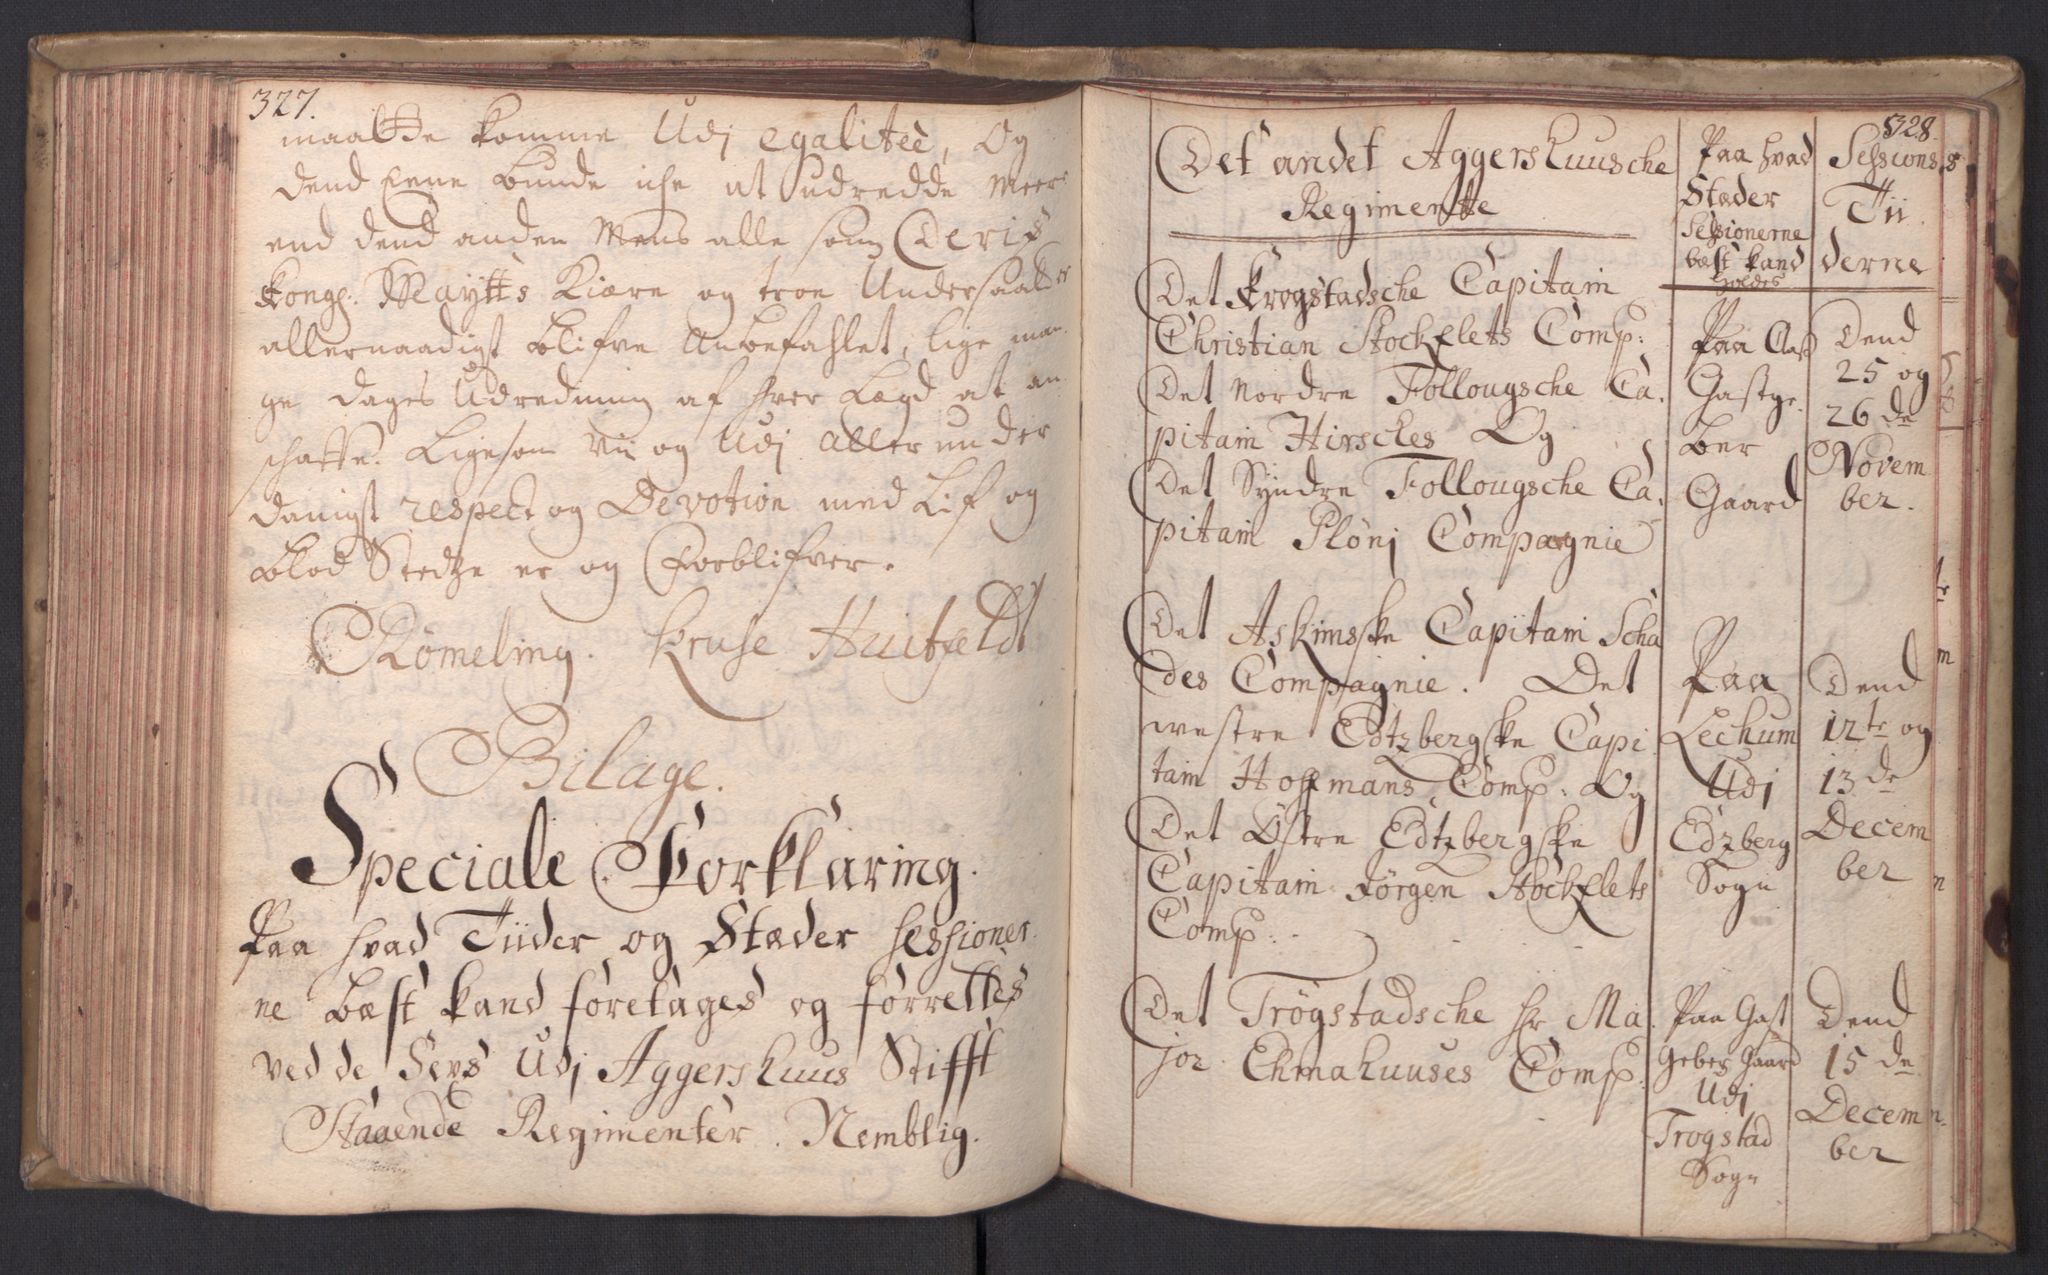 327.
maatte komme Udj egaliteè, Og
dend Eene Bunde iche at udredde Meere
end dend anden Mens alle som Deris
Kongl: Maÿtts Kiære og troe Undersaatter
allernaadigst blifve Anbefahlet, lige man
ge dages Udredning af hver Lægd at an
schaffe. Ligesom Vii og Udj aller under
danigst respect og Devotion med Lif og
blod Stedtze er og Forblifver.
Römeling. Kruse Huitfeldt
Bilage.
Speciale Forklaring.
Paa hvad Tiider og Stæder Sessioner
ne best kand foretages og forrettes
ved de Sex Udj Aggershuus Stifft
Staaende Regimenter. Nemblig.
328.
Det andet Aggershuusche
Regimente
Paa hvad
Stæder
Sessionerne
best kand
holdes
Sessions
Tii
derne
Det Krogstadsche Capitain
Christian Stockflets Comp:
Det Nordre Follougsche Ca
pitain Hirsches Og
Det Syndre Follougsche Ca
pitain Plönj Compagnie
Paa Aas
Gastge
ber
Gaard
Dend
25 og
26 de
Novem
ber.
Det Askimsske Capitain Scha
des Compagnie. Det
westre Edtzbergske Capi
tain Hoffmans Comp: Og
Det Östre Edtzbergske
Capitain Jörgen Stockflets
Comp:
Paa
Lechum
Udj
Edzberg
Sogn
Dend
12te og
13 de
Decem
ber
Det Trögstadsche Hr Ma
jor Ehmahuuses Comp:
Paa Gast
Gebers Gaard
Udj
Trogstad
Sogn
Dend
15 de
Decem
ber